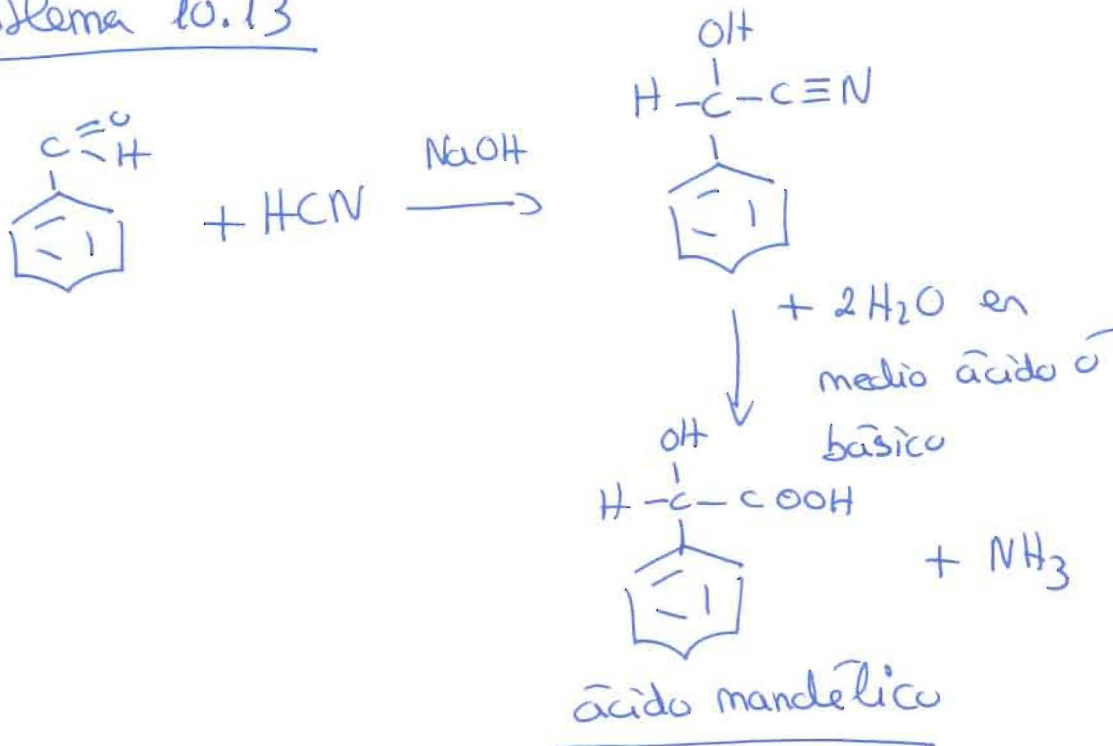 10.13
OH
H-C-C≡N
C=O
H
+ HCN
NaOH
+ 2H₂O en
medio ácido ó
básico
OH
H-C-COOH
+ NH₃
ácido mandélico